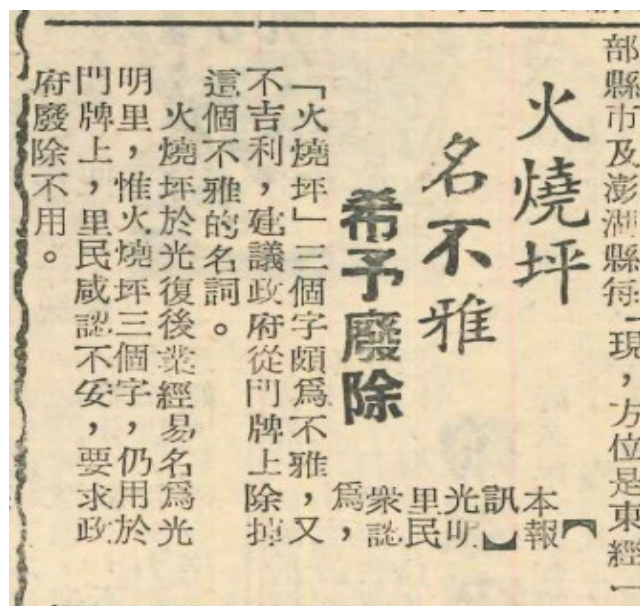 部縣市及澎湖縣每
現，方位是東經一
火燒坪
名不雅
希予廢除
【本報
訊】
光明
里民
衆認
爲，
「火燒坪」三個字頗爲不雅，又
不吉利，建議政府從門牌上除掉
這個不雅的名詞。
火燒坪於光復後業經易名爲光
明里，惟火燒坪三個字，仍用於
門牌上，里民咸認不妥，要求政
府廢除不用。